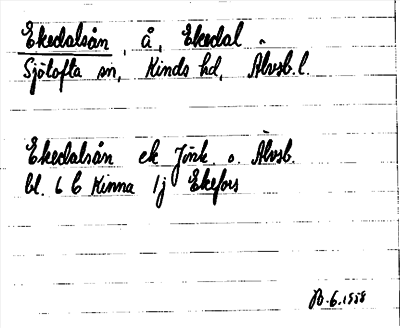 Ekedalsån, å, Ekedal.
Sjötofta sn, Kinds hd, Älvsb. l.
Ekedalsån ek Jönk. o. Älvsb.
bl. 6 C Kinna 1j Ekefors
6.1958